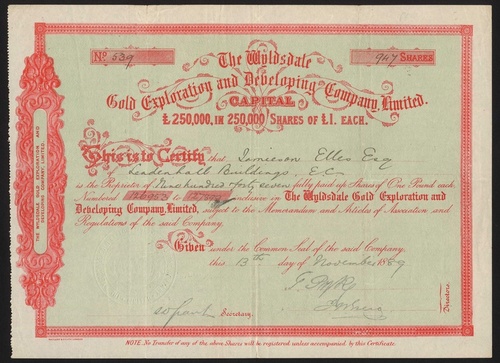 No. 539
947 SHARES
The Wyldsdale
Gold Exploration and Developing Company, Limited.
CAPITAL
£250,000, IN 250,000 SHARES OF £1. EACH.
This is to Certify that Jamieson Ellis Esq
Leadenhall Buildings, E.C
is the Proprietor of Nine hundred forty seven fully paid up Shares of One Pound each
Numbered to inclusive in The Wyldsdale Gold Exploration and
Developing Company, Limited, subject to the Memorandum and Articles of Association and
Regulations of the said Company.
Given under the Common Seal of the said Company,
this 13th day of November 1889
Directors.
Secretary.
NOTE. No Transfer of any of the above Shares will be registered unless accompanied by this Certificate.
THE WYLDSDALE GOLD EXPLORATION AND
DEVELOPING COMPANY, LIMITED.